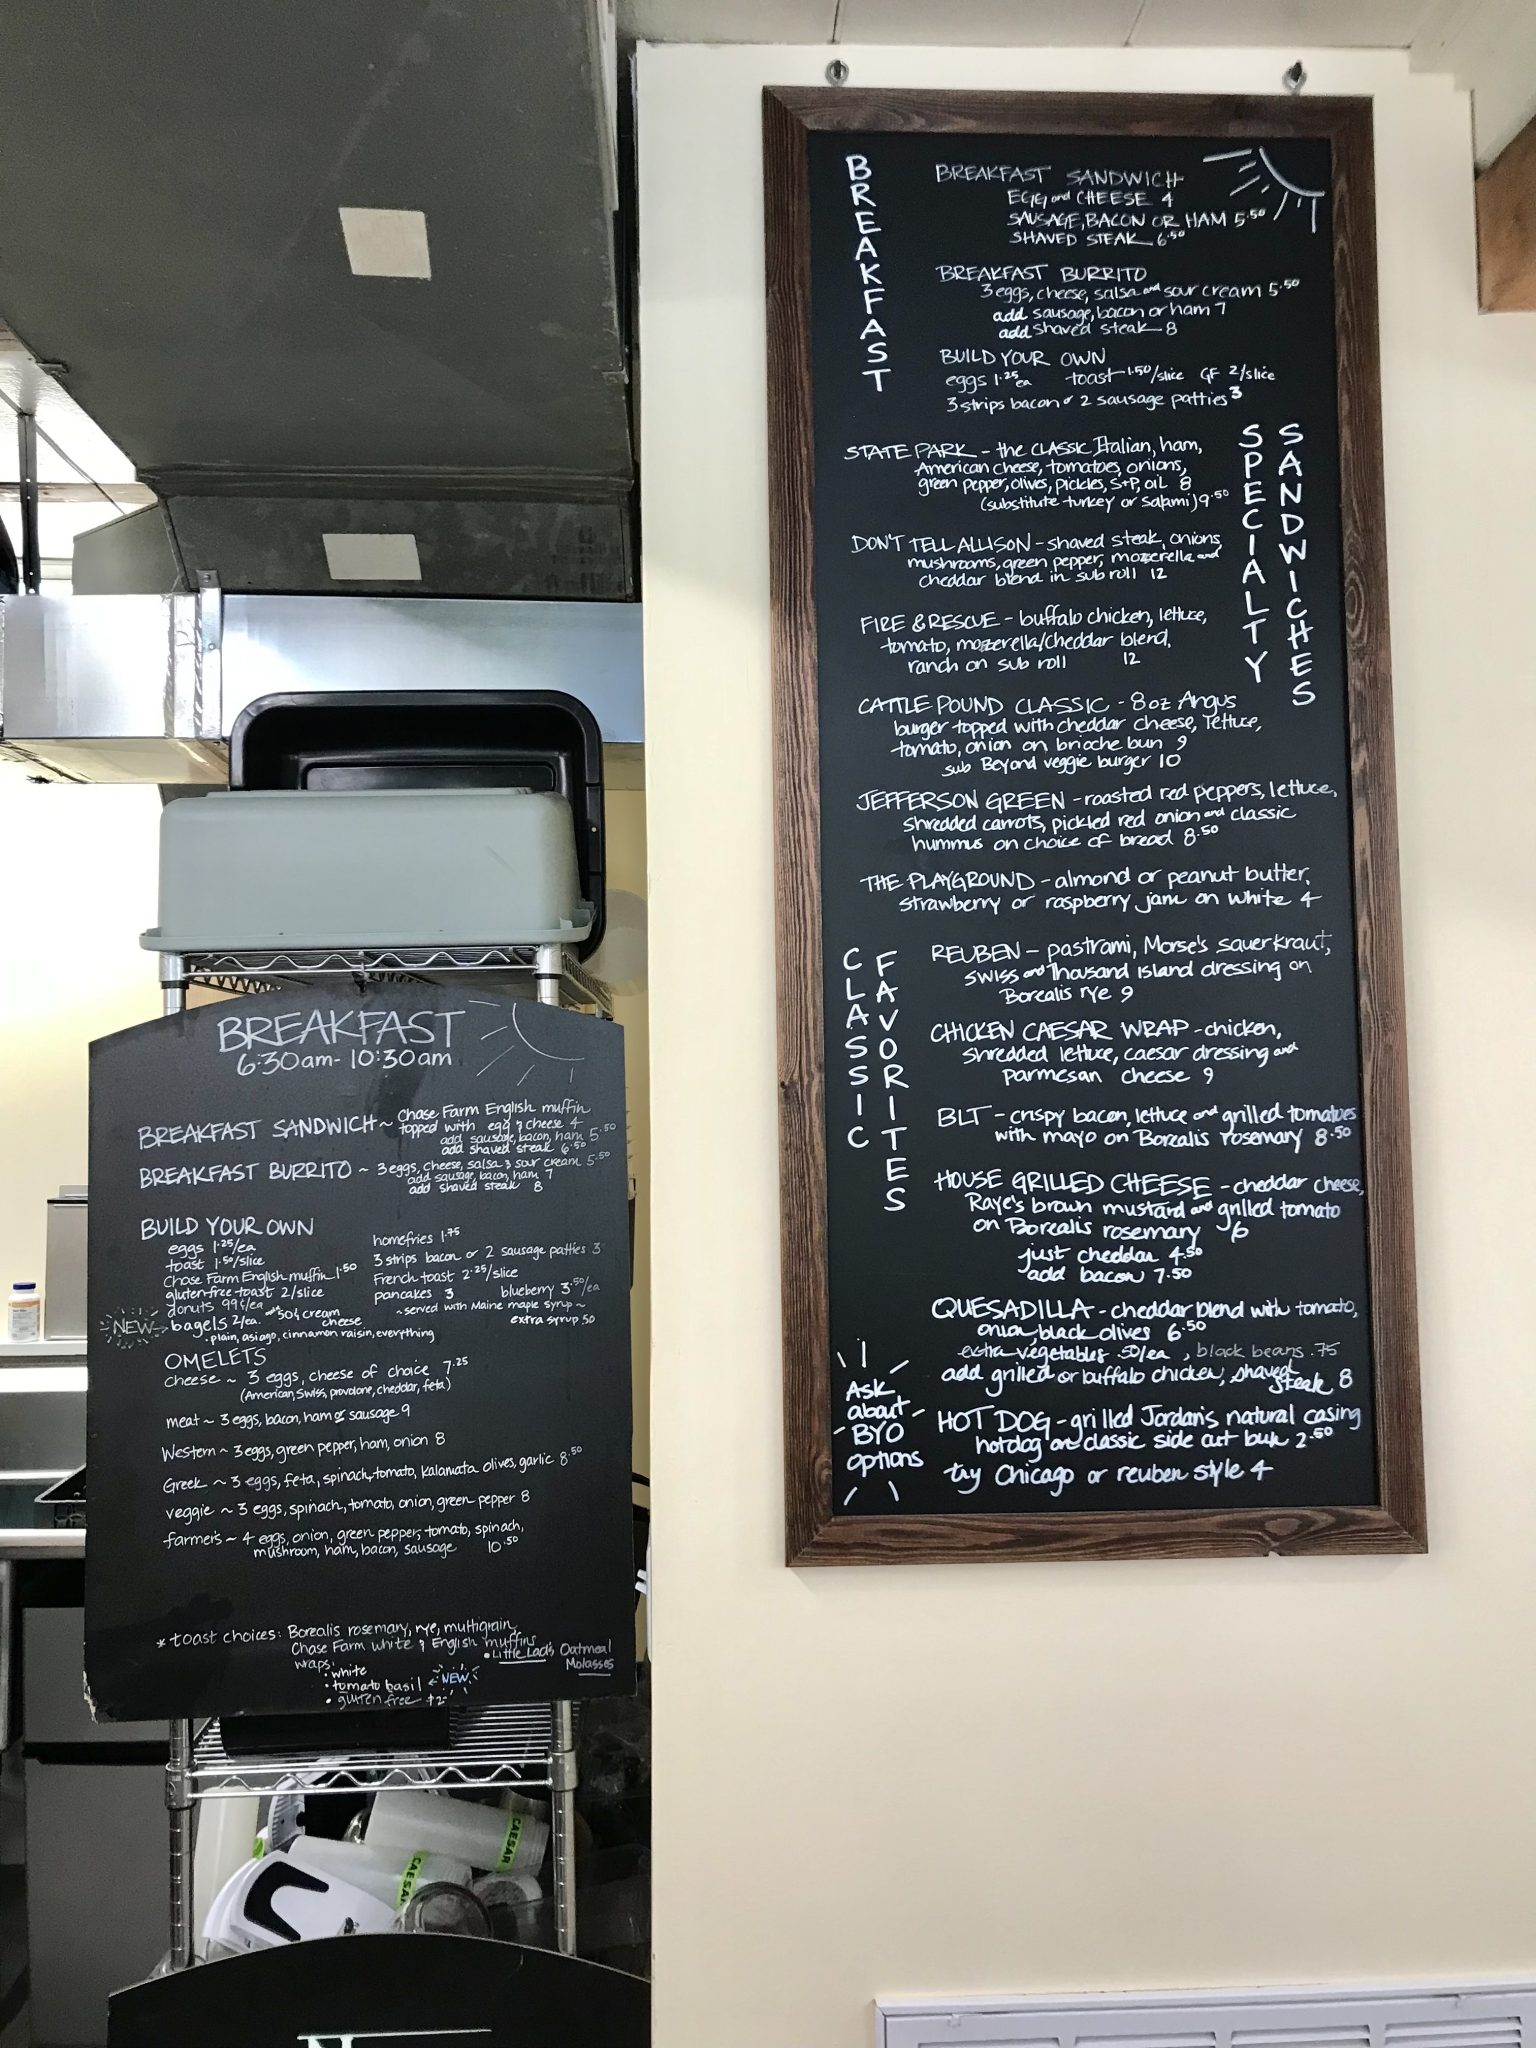 BREAKFAST
6:30am-10:30am
BREAKFAST SANDWICH ~ Chase Farm English muffin
topped with egg & cheese 4
add sausage, bacon, ham 5.50
add shaved steak 6.50
BREAKFAST BURRITO ~ 3 eggs, cheese, salsa & sour cream 5.50
add sausage, bacon, ham 7
add shaved steak 8
BUILD YOUR OWN
eggs 1.25/ea
toast 1.50/slice
Chase Farm English muffin 1.50
gluten-free toast 2/slice
donuts 99¢/ea
NEW bagels 2/ea. add 50¢ cream
cheese
• plain, asiago, cinnamon raisin, everything
homefries 1.75
3 strips bacon or 2 sausage patties 3
French toast 2.25/slice
pancakes 3 blueberry 3.50/ea
~served with Maine maple syrup~
extra syrup 50
OMELETS
cheese ~ 3 eggs, cheese of choice 7.25
(American, Swiss, provolone, cheddar, feta)
meat ~ 3 eggs, bacon, ham or sausage 9
Western ~ 3 eggs, green pepper, ham, onion 8
Greek ~ 3 eggs, feta, spinach, tomato, Kalamata olives, garlic 8.50
veggie ~ 3 eggs, spinach, tomato, onion, green pepper 8
farmers ~ 4 eggs, onion, green pepper, tomato, spinach,
mushroom, ham, bacon, sausage 10.50
* toast choices: Borealis rosemary, rye, multigrain,
Chase Farm white & English muffins
• Little Lad's Oatmeal
Molasses
wraps:
• white
• tomato basil ← NEW
• gluten free +2-
CAESAR
CAESAR
BREAKFAST
BREAKFAST SANDWICH
EGG and CHEESE 4
SAUSAGE, BACON OR HAM 5.50
SHAVED STEAK 6.50
BREAKFAST BURRITO
3 eggs, cheese, salsa and sour cream 5.50
add sausage, bacon or ham 7
add shaved steak 8
BUILD YOUR OWN
eggs 1.25 ea toast 1.50/slice GF 2/slice
3 strips bacon or 2 sausage patties 3
SPECIALTY
SANDWICHES
STATE PARK - the CLASSIC Italian, ham,
American cheese, tomatoes, onions,
green pepper, olives, pickles, S+P, oil 8
(substitute turkey or salami) 9.50
DON'T TELL ALLISON - shaved steak, onions,
mushrooms, green pepper, mozzerella and
cheddar blend in sub roll 12
FIRE & RESCUE - buffalo chicken, lettuce,
tomato, mozzerella/cheddar blend,
ranch on sub roll 12
CATTLE POUND CLASSIC - 8oz Angus
burger topped with cheddar cheese, lettuce,
tomato, onion on brioche bun 9
sub Beyond veggie burger 10
JEFFERSON GREEN - roasted red peppers, lettuce,
shredded carrots, pickled red onion and classic
hummus on choice of bread 8.50
THE PLAYGROUND - almond or peanut butter,
strawberry or raspberry jam on white 4
CLASSIC
FAVORITES
REUBEN - pastrami, Morse's sauerkraut,
swiss and Thousand Island dressing on
Borealis rye 9
CHICKEN CAESAR WRAP - chicken,
shredded lettuce, caesar dressing and
parmesan cheese 9
BLT - crispy bacon, lettuce and grilled tomatoes
with mayo on Borealis rosemary 8.50
HOUSE GRILLED CHEESE - cheddar cheese,
Raye's brown mustard and grilled tomato
on Borealis rosemary 6
just cheddar 4.50
add bacon 7.50
QUESADILLA - cheddar blend with tomato,
onion, black olives 6.50
extra vegetables .50/ea, black beans .75
add grilled or buffalo chicken, shaved
steak 8
HOT DOG - grilled Jordan's natural casing
hotdog on classic side cut bun 2.50
try Chicago or reuben style 4
Ask
about
BYO
options